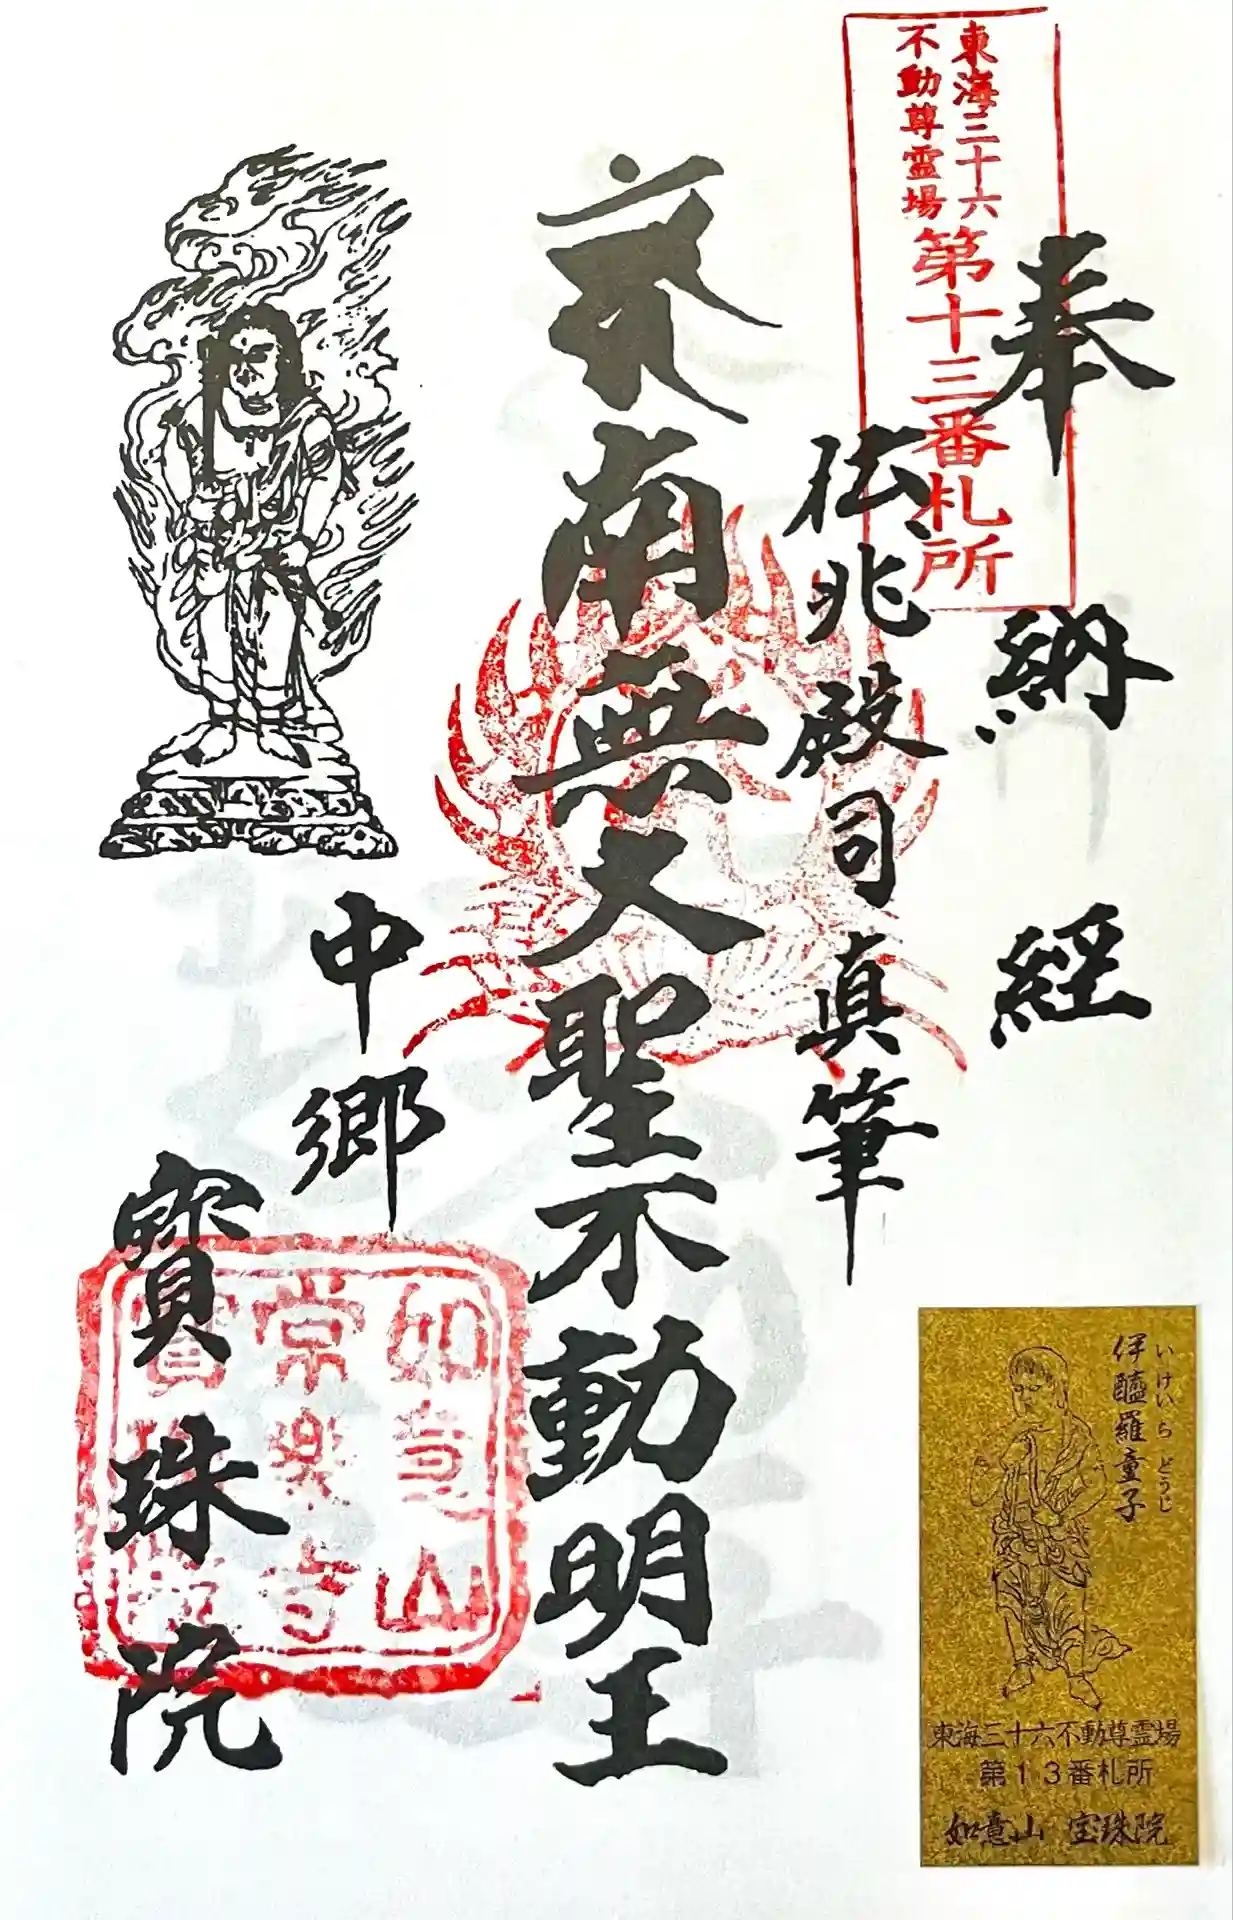 奉納経
東海三十六
不動尊霊場
第十三番札所
伝兆殿司真筆
南無大聖不動明王
中郷
寳珠院
如意山
常楽寺
いけいら どうじ
伊醯羅童子
東海三十六不動尊霊場
第13番札所
如意山 宝珠院